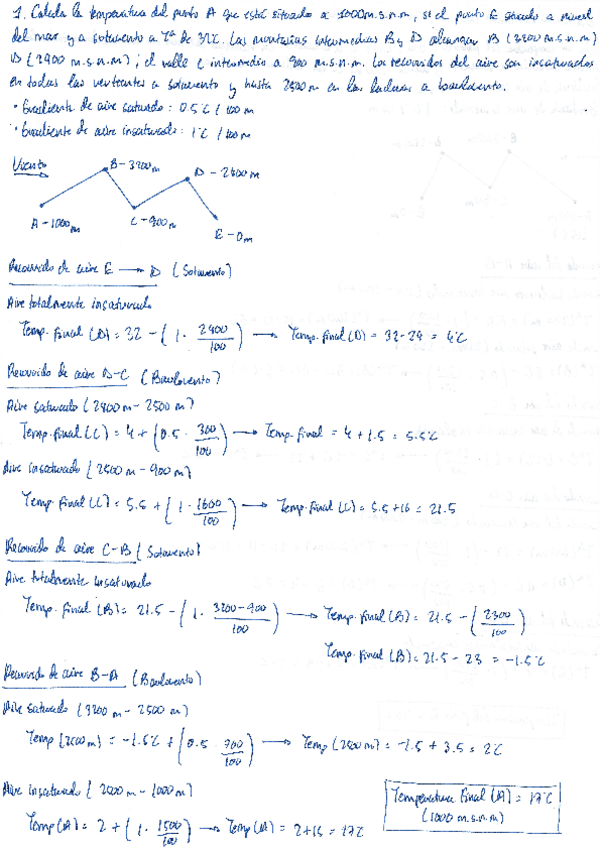 1. Calcula la temperatura del punto A que está situado a 1000 m.s.n.m, si el punto E situado a nivel
del mar y a sotavento a Tª de 32ºC. Las montañas intermedias B y D alcanzan B (3200 m.s.n.m)
D (2800 m.s.n.m); el valle C intermedio a 900 m.s.n.m. Los recorridos del aire son insaturados
en todas las vertientes a sotavento y hasta 2500 m en las laderas a barlovento.
• Gradiente de aire saturado: 0.5ºC / 100 m
• Gradiente de aire insaturado: 1ºC / 100 m
Viento
B - 3200m
D - 2800 m
A - 1000m
C - 900 m
E - 0m
Recorrido de aire E → D (Sotavento)
Aire totalmente insaturado
Temp. Final (D) = 32 - (1 · 2800/100) → Temp. Final (D) = 32 - 28 = 4ºC
Recorrido de aire D-C (Barlovento)
Aire saturado (2800 m - 2500 m)
Temp. Final (C) = 4 + (0.5 · 300/100) → Temp. Final = 4 + 1.5 = 5.5ºC
Aire insaturado (2500 m - 900 m)
Temp. Final (C) = 5.5 + (1 · 1600/100) → Temp. Final (C) = 5.5 + 16 = 21.5
Recorrido de aire C-B (Sotavento)
Aire totalmente insaturado
Temp. Final (B) = 21.5 - (1 · 3200-900/100) → Temp. Final (B) = 21.5 - (2300/100)
Temp. Final (B) = 21.5 - 23 = -1.5ºC
Recorrido de aire B-A (Barlovento)
Aire saturado (3200 m - 2500 m)
Temp (2500 m) = -1.5ºC + (0.5 · 700/100) → Temp (2500 m) = -1.5 + 3.5 = 2ºC
Aire insaturado (2500 m - 1000 m)
Temp (A) = 2 + (1 · 1500/100) → Temp (A) = 2 + 15 = 17ºC
Temperatura Final (A) = 17ºC
(1000 m.s.n.m)